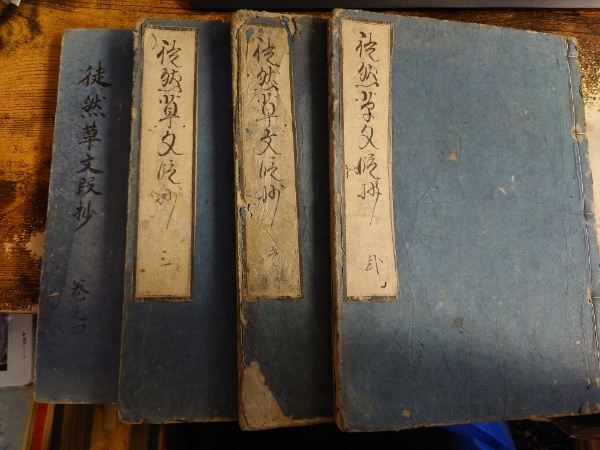 徒然草文段抄
弐
徒然草文段抄
五
徒然草文段抄
三
徒然草文段抄
巻之四